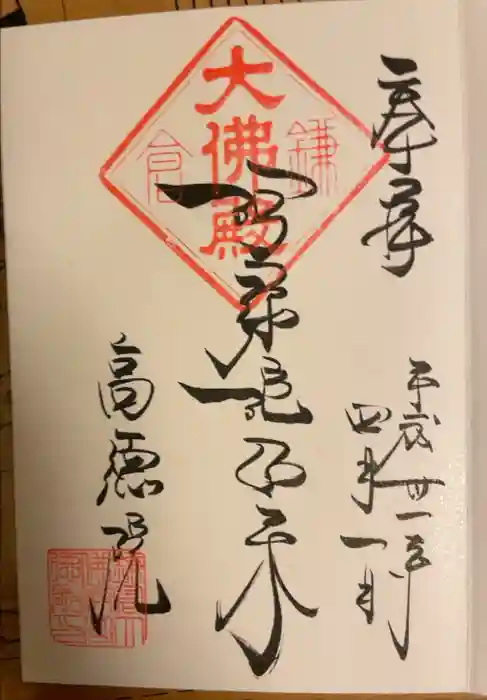 奉拝
平成卅一年
四月一日
鎌倉
大佛殿
阿弥陀如来
高德院